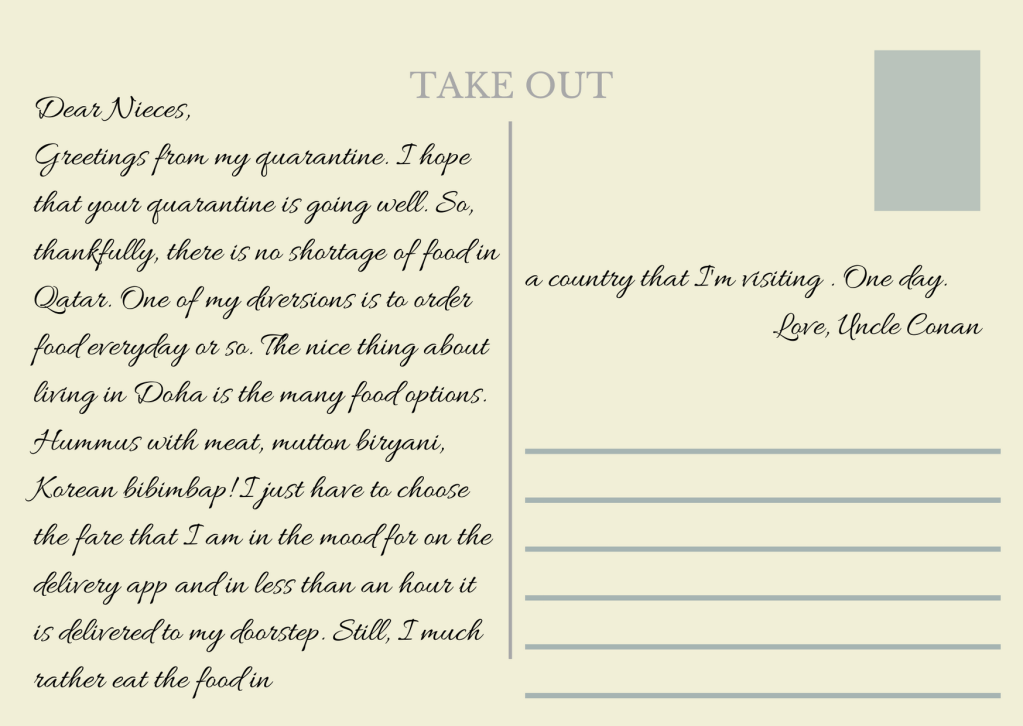 TAKE OUT
Dear Nieces,
Greetings from my quarantine. I hope
that your quarantine is going well. So,
thankfully, there is no shortage of food in
Qatar. One of my diversions is to order
food everyday or so. The nice thing about
living in Doha is the many food options.
Hummus with meat, mutton biryani,
Korean bibimbap! I just have to choose
the fare that I am in the mood for on the
delivery app and in less than an hour it
is delivered to my doorstep. Still, I much
rather eat the food in
a country that I'm visiting . One day.
Love, Uncle Conan